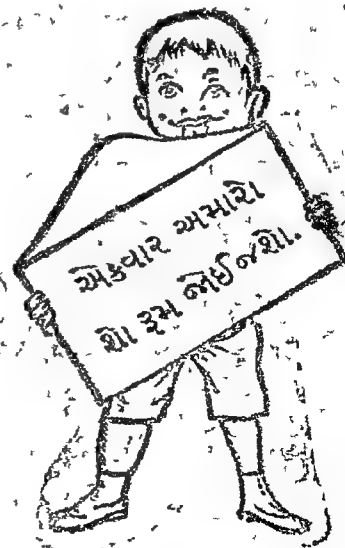 એકવાર અમારો
શો રૂમ જોઈ જશો.